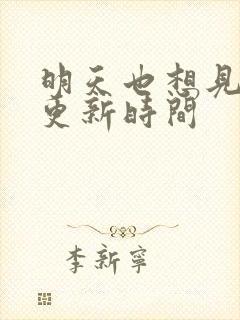 明天也想見
更新時間
李新寧